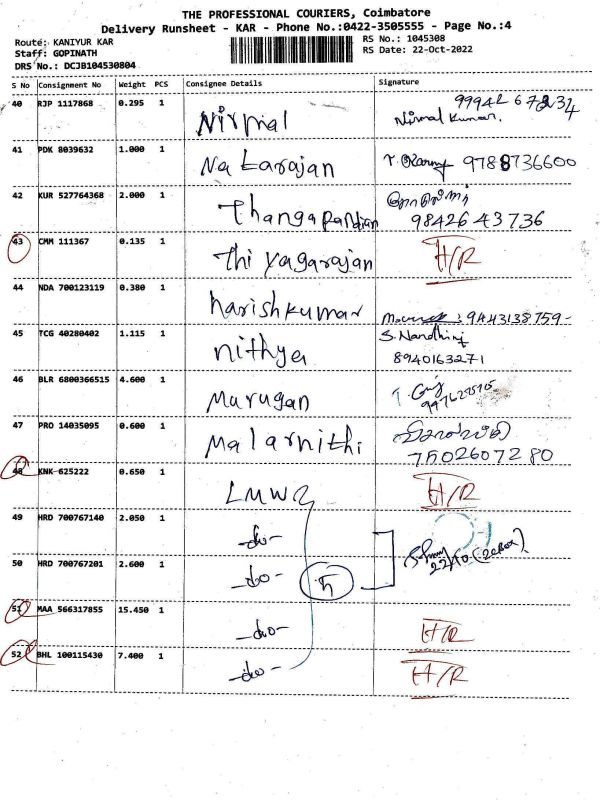 THE PROFESSIONAL COURIERS, Coimbatore
Delivery Runsheet - KAR - Phone No.:0422-3505555 - Page No.:4
Route: KANIYUR KAR
RS No.: 1045308
Staff: GOPINATH
RS Date: 22-Oct-2022
DRS No.: DCJB104530804
S No Consignment No Weight PCS Consignee Details Signature
40 RJP 1117868 0.295 1 Nirmal Nirmal Kumar.
41 PDK 8039632 1.000 1 Natarajan 9788736600
42 KUR 527764368 2.000 1 Thangapandian 9842643736
43 CMM 111367 0.135 1 Thiyagarajan H/R
44 NDA 700123119 0.380 1 harishkumar : 9443138759-
45 TCG 40280402 1.115 1 nithya S. Nandhini
8940163271
46 BLR 6800366515 4.600 1 Murugan
47 PRO 14035095 0.600 1 Malarnithi
7502607280
48 KNK 625222 0.650 1 LMW2 H/R
49 HRD 700767140 2.050 1 -do-
50 HRD 700767201 2.600 1 -do- 22/10
51 MAA 566317855 15.450 1 -do- H/R
52 BHL 100115430 7.400 1 -do- H/R